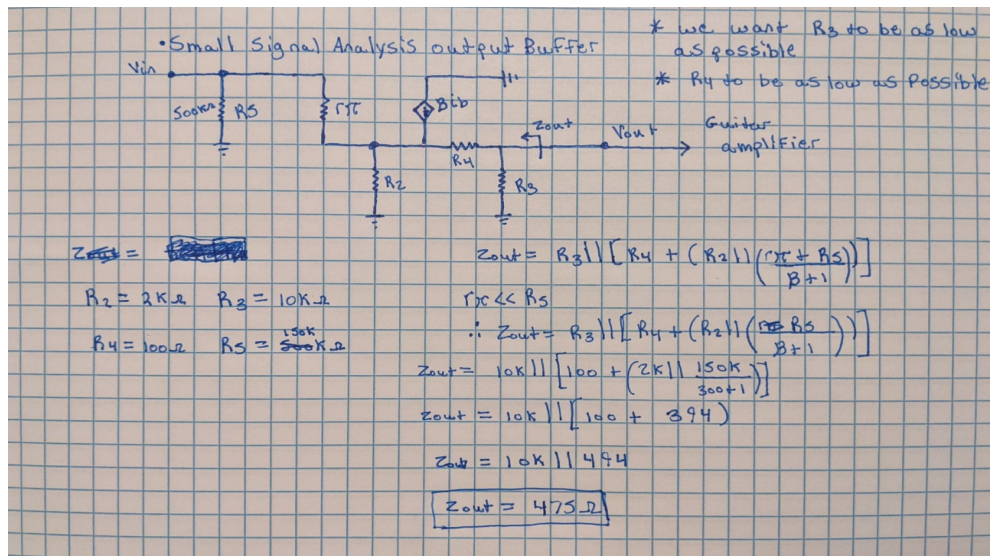 • Small Signal Analysis output Buffer
* we want R3 to be as low
as possible
* R4 to be as low as Possible
Vin
500kΩ R5
rπ
Bib
Zout
Vout
Guitar
amplifier
R4
R2
R3
Zout =
R2 = 2KΩ R3 = 10KΩ
R4 = 100Ω R5 = 150K 500KΩ
Zout = R3 || [R4 + (R2 || (rπ + R5 / B+1))]
rπ << R5
∴ Zout = R3 || [R4 + (R2 || (R5 / B+1))]
Zout = 10K || [100 + (2K || 150K / 300+1)]
Zout = 10K || [100 + 394)
Zout = 10K || 494
Zout = 475Ω